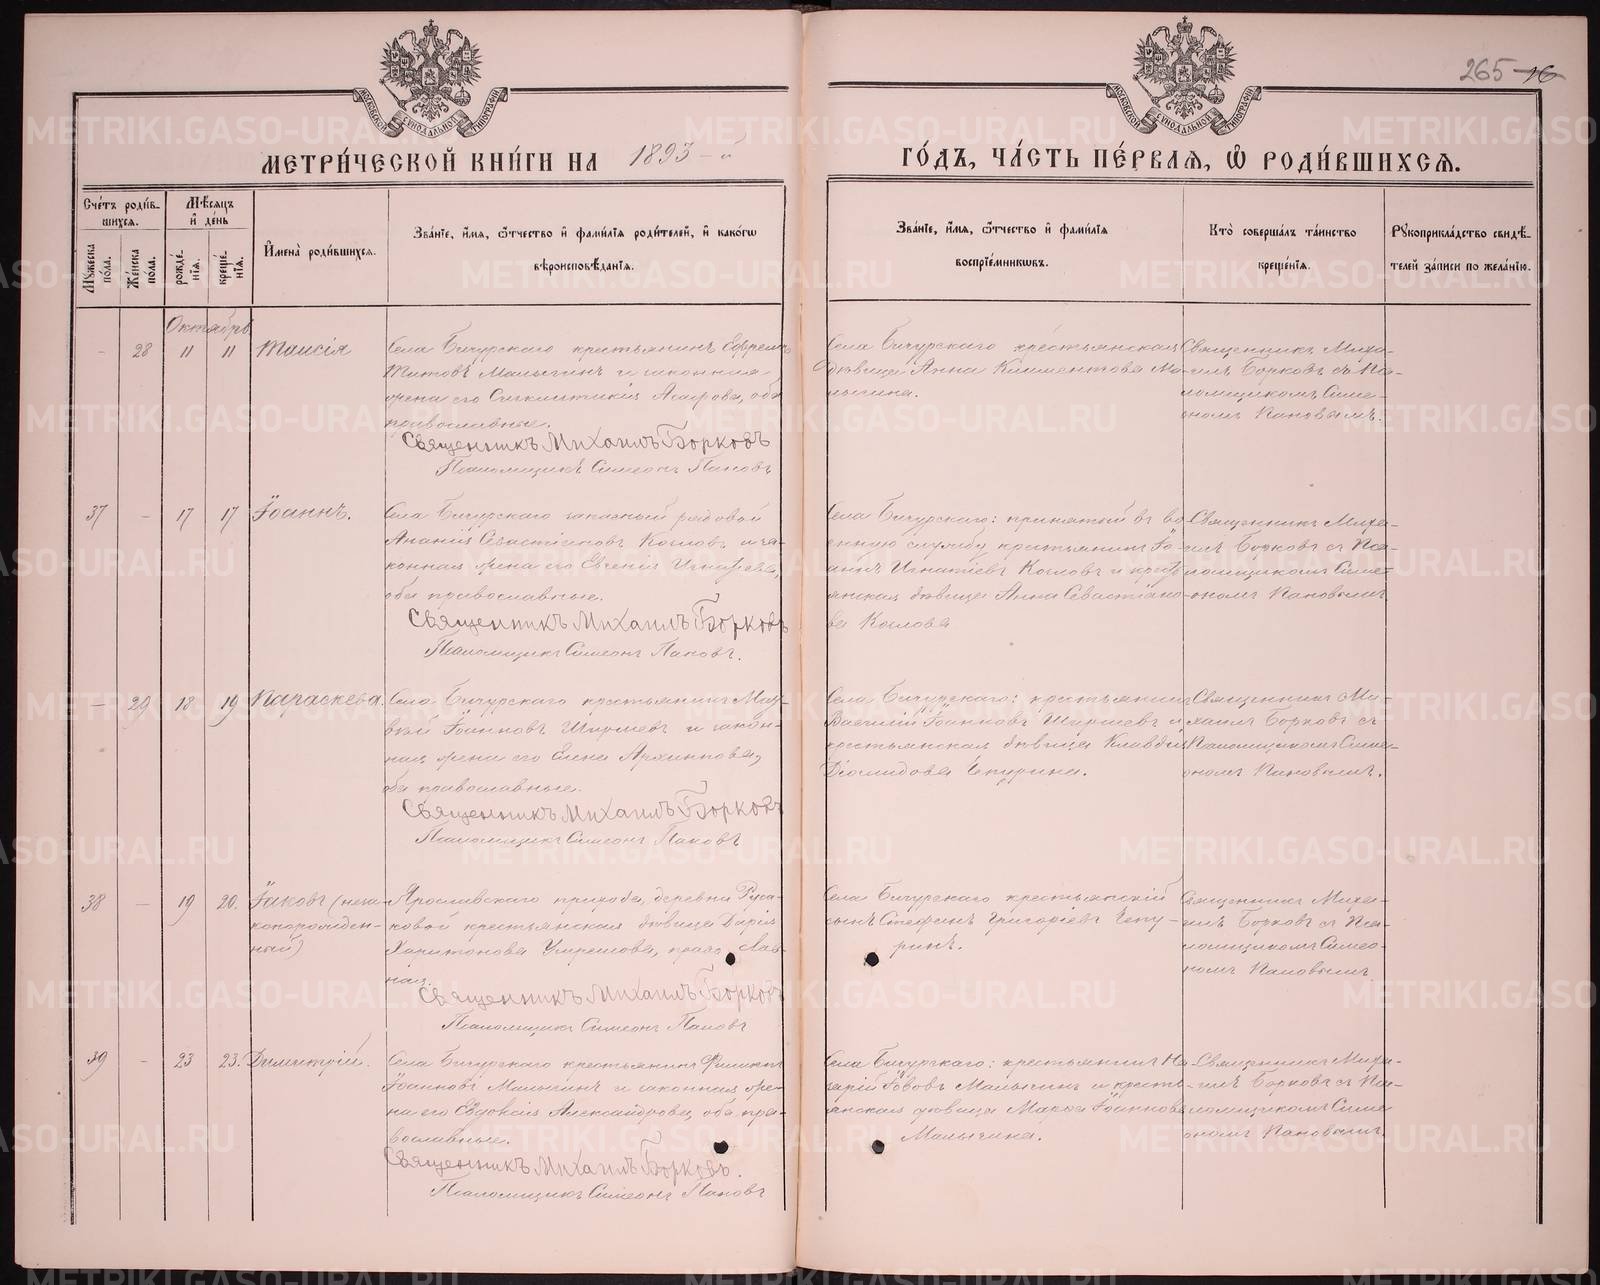 265
МОСКОВСКОЙ СѴНОДАЛЬНОЙ ТИПОГРАФІИ
МОСКОВСКОЙ СѴНОДАЛЬНОЙ ТИПОГРАФІИ
МЕТРИ́ЧЕСКОЙ КНИ́ГИ НА 1893-й
ГО́ДЪ, ЧА́СТЬ ПЕ́РВАЯ, Ѽ РОДИ́ВШИХСЯ.
Сче́тъ роди́в-
шихся.
Мѣ́сяцъ
и҆ де́нь
Мꙋ́жеска
по́ла.
Же́нска
по́ла.
рожде-
нїя.
креще-
нїя.
И҆мена̀ роди́вшихся.
Зва́нїе, и҆́мя, ѻ҆́тчество и҆ фами́лїя роди́телей, и҆ како́гѡ
вѣроисповѣ́данїя.
Зва́нїе, и҆́мя, ѻ҆́тчество и҆ фами́лїя
воспрїе́мниковъ.
Кто̀ соверша́лъ та́инство
креще́нїя.
Рꙋкоприкла́дство свидѣ́-
телей за́писи по жела́нїю.
Октябрь
- 28 11 11 Таисія
Села Бичурскаго крестьянинъ Ефремъ
Титовъ Малыгинъ и законная
жена его Агафова, оба
православные.
Священникъ Михаилъ Борковъ
Псаломщикъ Симеонъ Пановъ
Села Бичурскаго крестьянская
дѣвица Анна Климентова Ма-
лыгина.
Священникъ Миха-
илъ Борковъ съ Пса-
ломщикомъ Симе-
ономъ Пановымъ.
37 - 17 17 Іоаннъ.
Села Бичурскаго запасный рядовой
Ананія Севастіановъ Козловъ и за-
конная жена его Евгенія Игнатьева,
оба православные.
Священникъ Михаилъ Борковъ
Псаломщикъ Симеонъ Пановъ.
Села Бичурскаго: принятый въ во-
енную службу крестьянинъ Іо-
аннъ Игнатіевъ Козловъ и кресть-
янская дѣвица Анна Севастіано-
ва Козлова
Священникъ Миха-
илъ Борковъ съ Пса-
ломщикомъ Симе-
ономъ Пановымъ
- 29 18 19 Параскева.
Села Бичурскаго крестьянинъ Мат-
вей Іоанновъ Ширшевъ и закон-
ная жена его Елена Архиппова,
оба православные.
Священникъ Михаилъ Борковъ
Псаломщикъ Симеонъ Пановъ
Села Бичурскаго: крестьянинъ
Василій Іоанновъ Ширшевъ и
крестьянская дѣвица Клавдія
Діомидова Чепурина.
Священникъ Ми-
хаилъ Борковъ съ
Псаломщикомъ Симе-
ономъ Пановымъ.
38 - 19 20. Іаковъ (неза-
конорожден-
ный)
Ярославскаго прихода, деревни Руса-
ковой крестьянская дѣвица Дарія
Харитонова православ-
ная.
Священникъ Михаилъ Борковъ
Псаломщикъ Симеонъ Пановъ
Села Бичурскаго крестьянскій
сынъ Стефанъ Григоріевъ Чепу-
ринъ.
Священникъ Миха-
илъ Борковъ съ Пса-
ломщикомъ Симео-
номъ Пановымъ
39 - 23 23. Димитрій.
Села Бичурскаго крестьянинъ Филиппъ
Іоанновъ Малыгинъ и законная же-
на его Евдокія Александрова, оба пра-
вославные.
Священникъ Михаилъ Борковъ.
Псаломщикъ Симеонъ Пановъ
Села Бичурскаго: крестьянинъ На-
зарій Іововъ Малыгинъ и кресть-
янская дѣвица Марѳа Іоаннова
Малыгина.
Священникъ Миха-
илъ Борковъ съ Пса-
ломщикомъ Симе-
ономъ Пановымъ.
METRIKI.GASO-URAL.RU